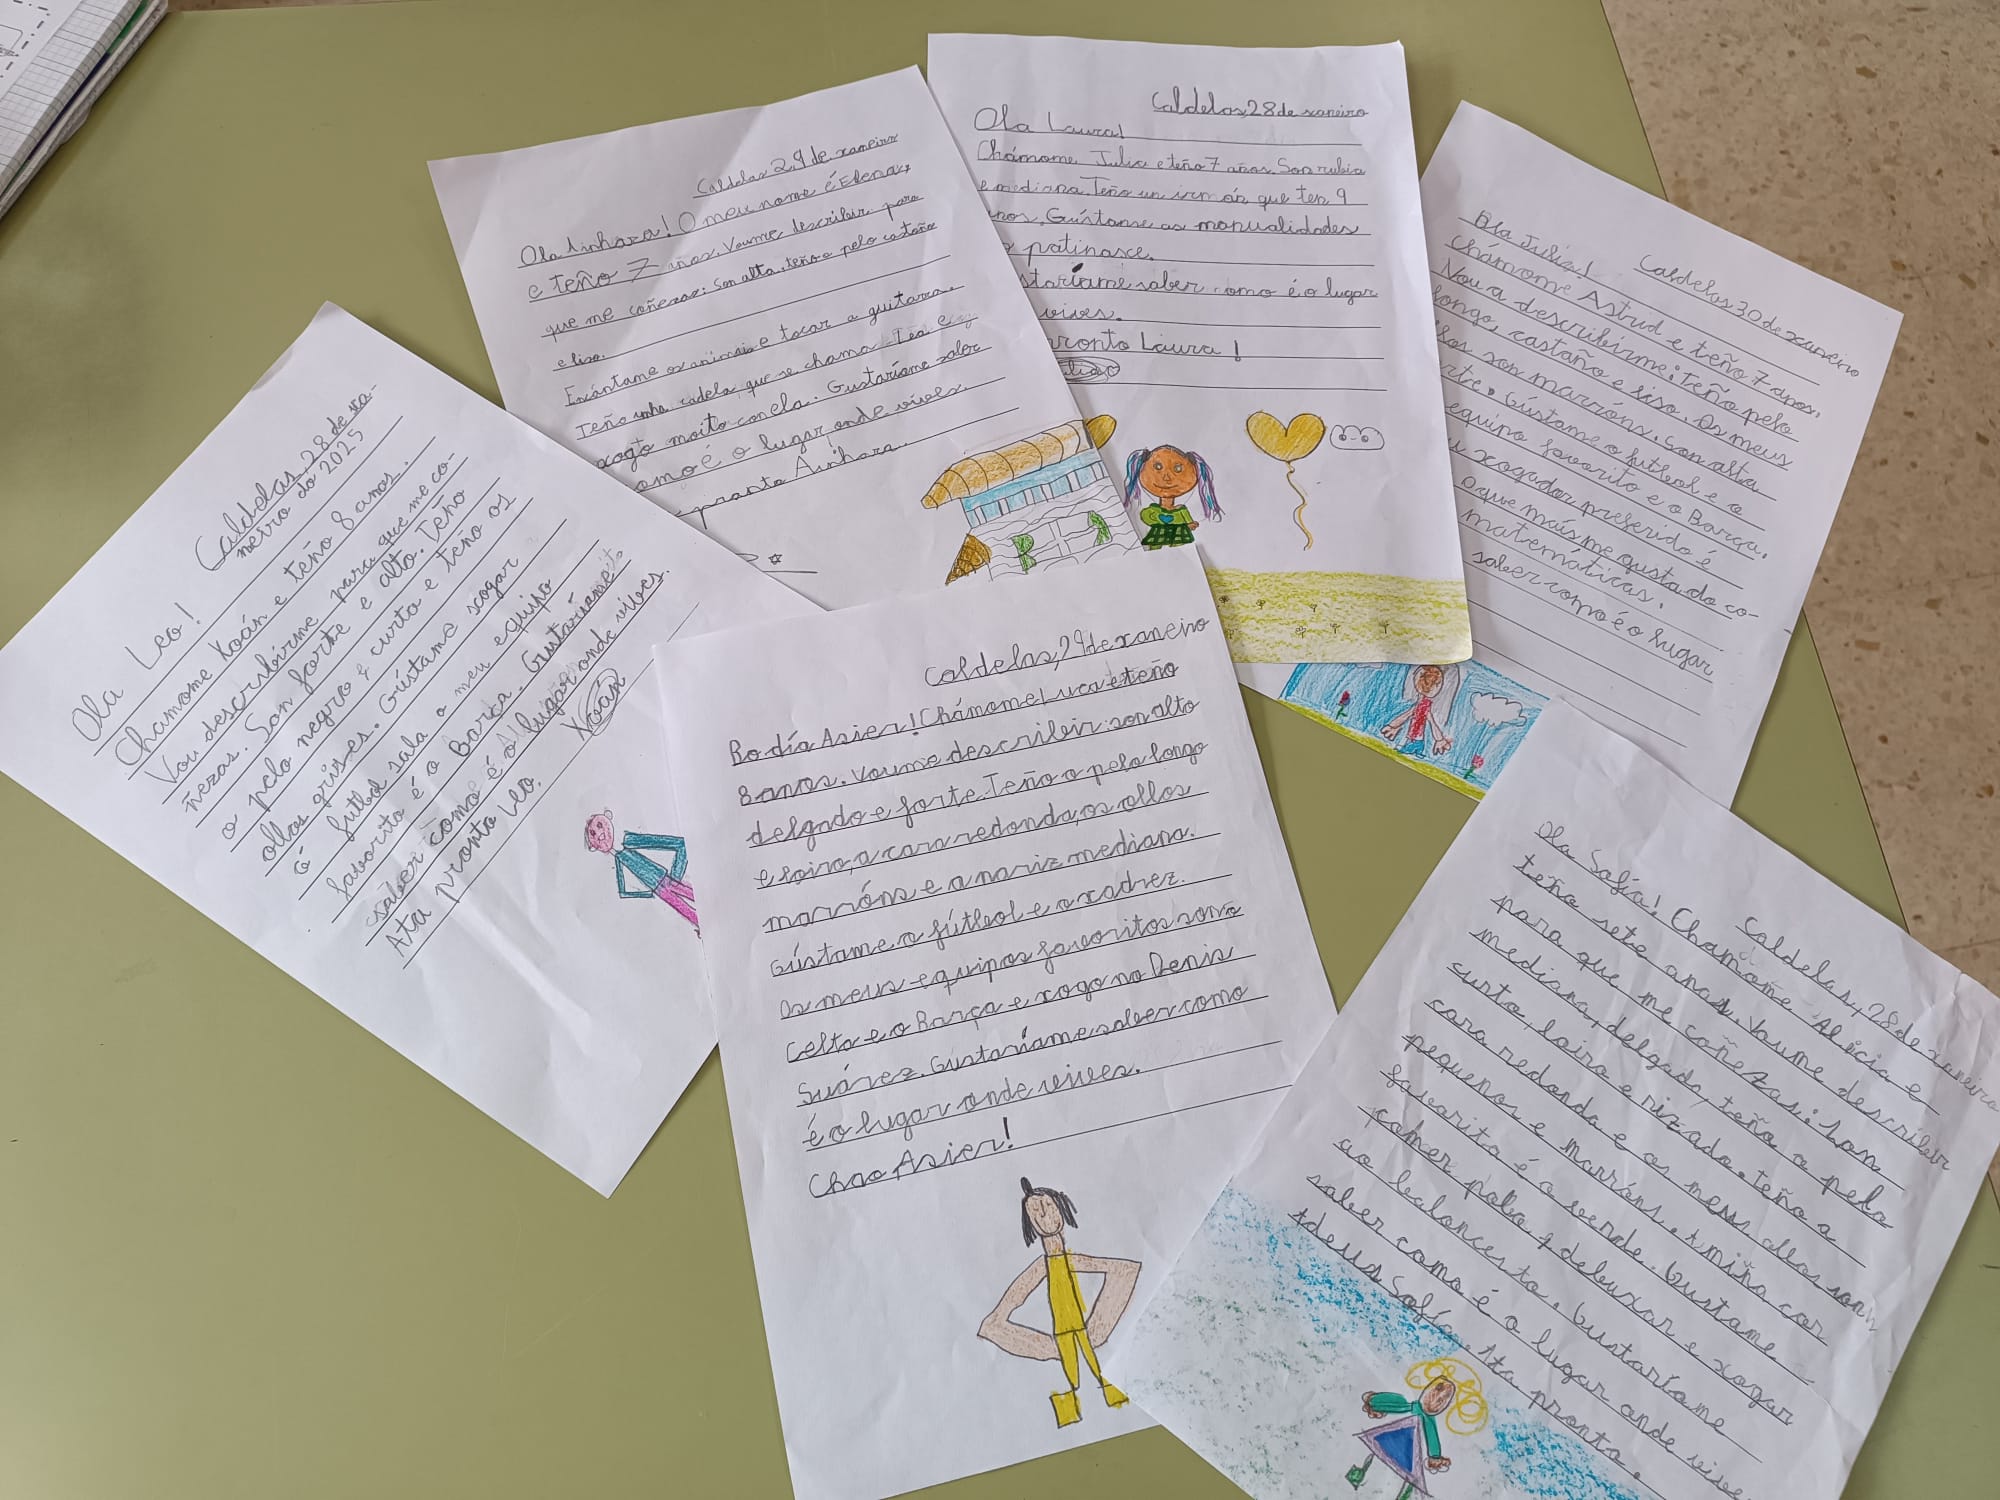 Caldelas 28 de xa-
neiro do 2025
Ola Leo!
Chamome Xoán e teño 8 anos.
Vou describirme para que me co-
ñezas. Son forte e alto. Teño
o pelo negro e curto e teño os
ollos grises. Gústame xogar
ó futbol sala o meu equipo
favorito é o Barça. Gustaríame
saber como é o lugar onde vives.
Ata pronto Leo.
Xoán
Caldelas 29 de xaneiro
Ola Ainhara! O meu nome é Elena
e teño 7 años. Voume describir para
que me coñezas: Son alta, teño o pelo castaño
e liso.
Encántame os animais e tocar a guitarra.
Teño unha cadela que se chama Tea e
xogo moito con ela. Gustaríame saber
omo é o lugar onde vives.
pronto Ainhara
Caldelas, 28 de xaneiro
Ola Laura!
Chámome Julia e teño 7 años. Son rubia
e mediana. Teño un irmán que ten 9
anos. Gústanse as manualidades
patinasce.
staríame saber como é o lugar
vives.
pronto Laura!
Caldelas 30 de xaneiro
Ola Julia!
Chámome Astrid e teño 7 anos.
Vou a describirme: Teño pelo
longo, castaño e liso. Os meus
llos son marróns. Son alta
rte. Gústame o futbol e o
equipo favorito e o Barça.
u xogador preferido é
o que máis me gusta do co-
matemáticas.
saber como é o lugar
Caldelas, 29 de xaneiro
Bo día Asier! Chámome Luca e teño
8 anos. Voume describir: son alto
delgado e forte. Teño o pelo longo
e loiro, a cara redonda, os ollos
marróns e a nariz mediana.
Gústame o fútbol e o xadrez.
Os meus equipos favoritos son o
Celta e o Barça e xogo no Denis
Suárez. Gustaríame saber como
é o lugar onde vives.
Chao, Asier!
Caldelas, 28 de xaneiro
Ola Sofía! Chámome Alicia e
teño sete anos. Voume describir
para que me coñezas: Son
mediana, delgada, teño o pelo
curto, loiro e rizado. Teño a
cara redonda e os meus ollos son
pequenos e marróns. A miña cor
favorita é o verde. Gustame
comer polbo, debuxar e xogar
ao baloncesto. Gustaríame
saber como é o lugar onde vive
Adeus Sofía. Ata pronto.